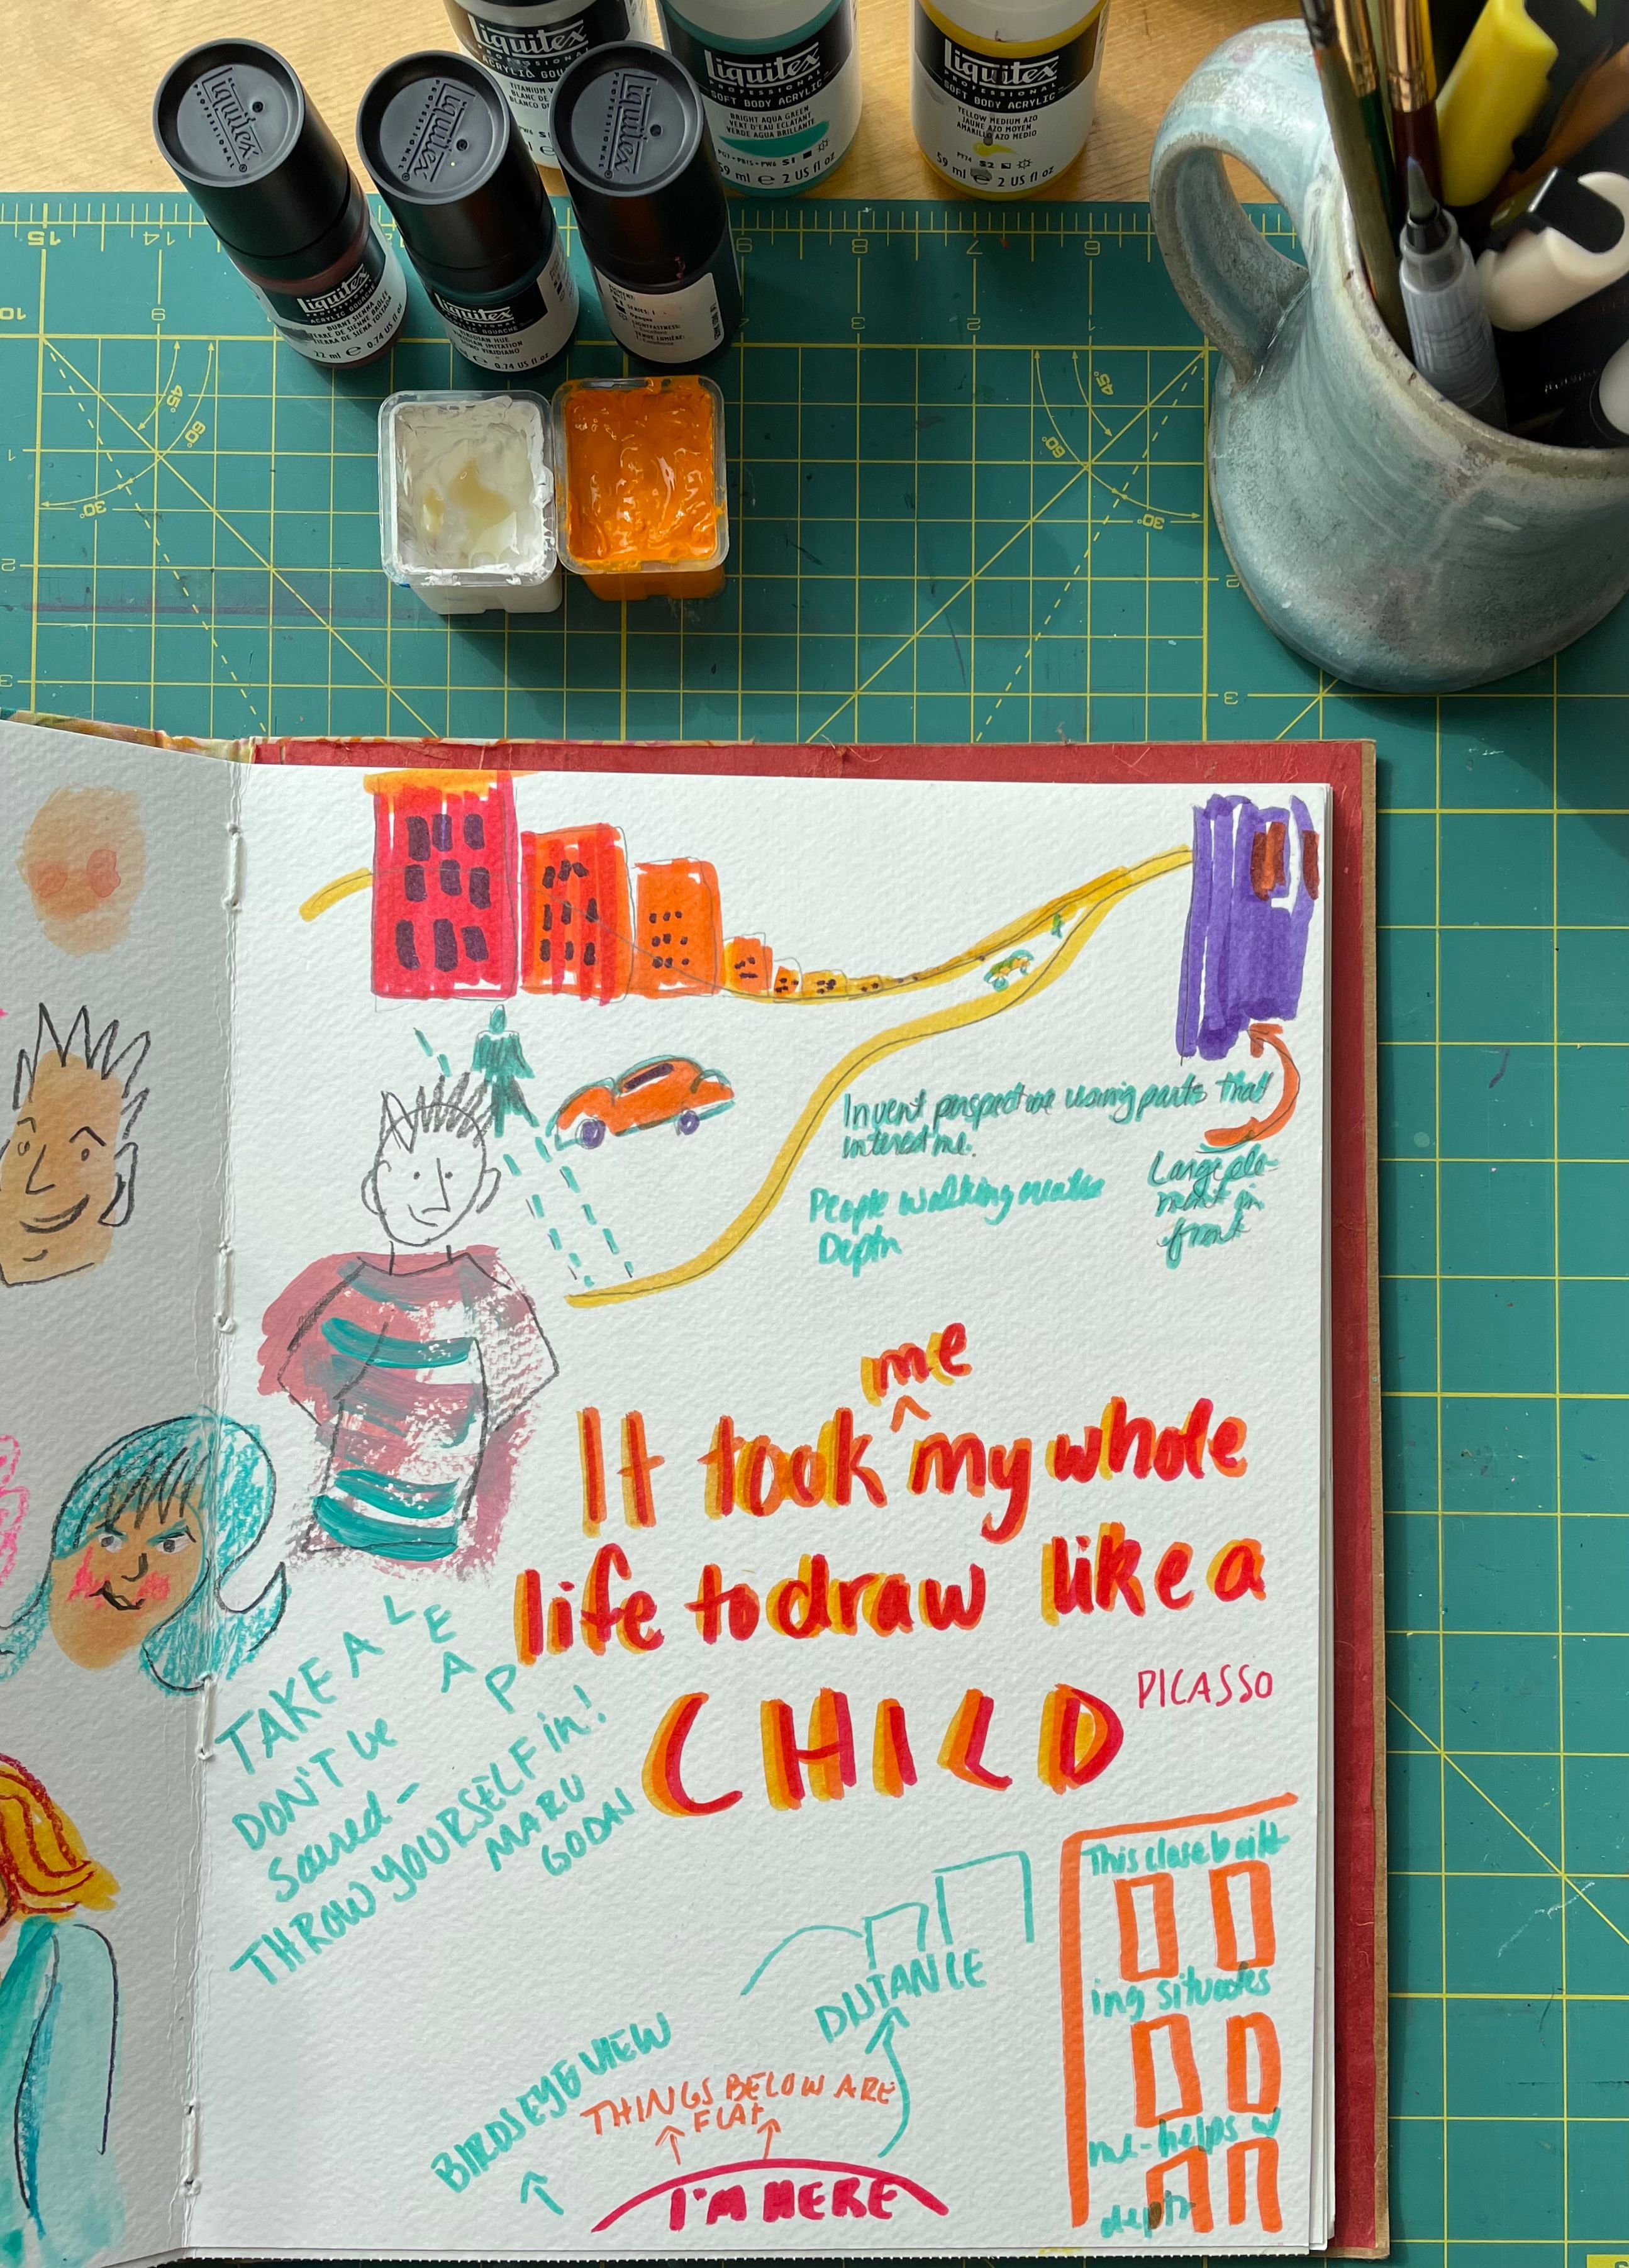 Liquitex
PROFESSIONAL
ACRYLIC GOUACHE
Liquitex
PROFESSIONAL
SOFT BODY ACRYLIC
BRIGHT AQUA GREEN
VERT D'EAU ECLATANT
VERDE AGUA BRILLANTE
S1
59 ml e 2 US fl oz
Liquitex
PROFESSIONAL
SOFT BODY ACRYLIC
YELLOW MEDIUM AZO
JAUNE AZO MOYEN
AMARILLO AZO MEDIO
PY74 S2
59 ml e 2 US fl oz
Liquitex
PROFESSIONAL
Liquitex
PROFESSIONAL
Liquitex
PROFESSIONAL
Liquitex
BURNT SIENNA
22 ml e 0.74 US fl oz
Liquitex
VIRIDIAN HUE
0.74 US fl oz
15 14 9 8 7 6
10 9 3 2
45° 60° 30°
45° 60° 30°
1
2 2
3 3
Invent perspective using parts that
interest me.
People walking creates
Depth
Large ele-
ment in
front
me
It took ^ my whole
life to draw like a
CHILD PICASSO
TAKE A LEAP
DON'T be
scared -
THROW YOURSELF in!
MARU
GODAI
This close build
ing situates
me - helps w
depth
DISTANCE
BIRDS EYE VIEW
THINGS BELOW ARE
FLAT
I'M HERE